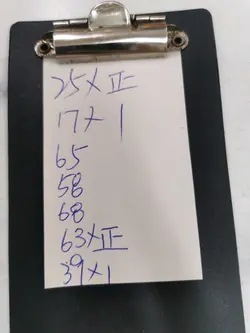 25×正
17×1
65
58
68
63×正
39×1